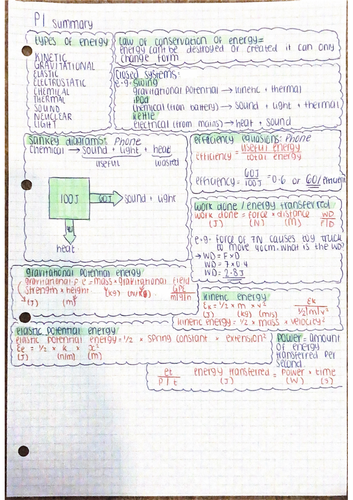 P1 Summary
types of energy
KINETIC
GRAVITATIONAL
ELASTIC
ELECTROSTATIC
CHEMICAL
THERMAL
SOUND
NEUCLEAR
LIGHT
law of conservation of energy=
energy can't be destroyed or created it can only
change form
Closed systems-
e.g. swing
gravitational potential → kinetic + thermal
ipod
chemical (from battery) → sound + light + thermal
kettle
electrical (from mains) → heat + sound
Sankey diagrams: Phone
chemical → sound + light + heat
useful wasted
100J
60J
sound + light
heat
efficiency equations: Phone
efficiency = useful energy
total energy
efficiency = 60J
100J
= 0.6 or 60% efficient
work done / energy transferred
work done = force × distance
(J) (N) (m)
WD
F|D
e.g: force of 7N causes toy truck
to move 40cm. what is the WD?
→ WD = F × D
WD = 7 × 0.4
WD = 2.8J
gravitational potential energy
gravitational P.E = mass × gravitational field
strength × height
(J) (m) (kg) (N/kg)
GPE
m|g|h
kinetic energy
Ek = 1/2 × m × v²
(J) (kg) (m/s)
Ek
1/2|m|v²
kinetic energy = 1/2 × mass × velocity²
elastic potential energy
elastic potential energy = 1/2 × spring constant × extension²
Ee = 1/2 × k × x²
(J) (N/m) (m)
Power = amount
of energy
transferred per
second
et
P|t
energy transferred = power × time
(J) (W) (s)